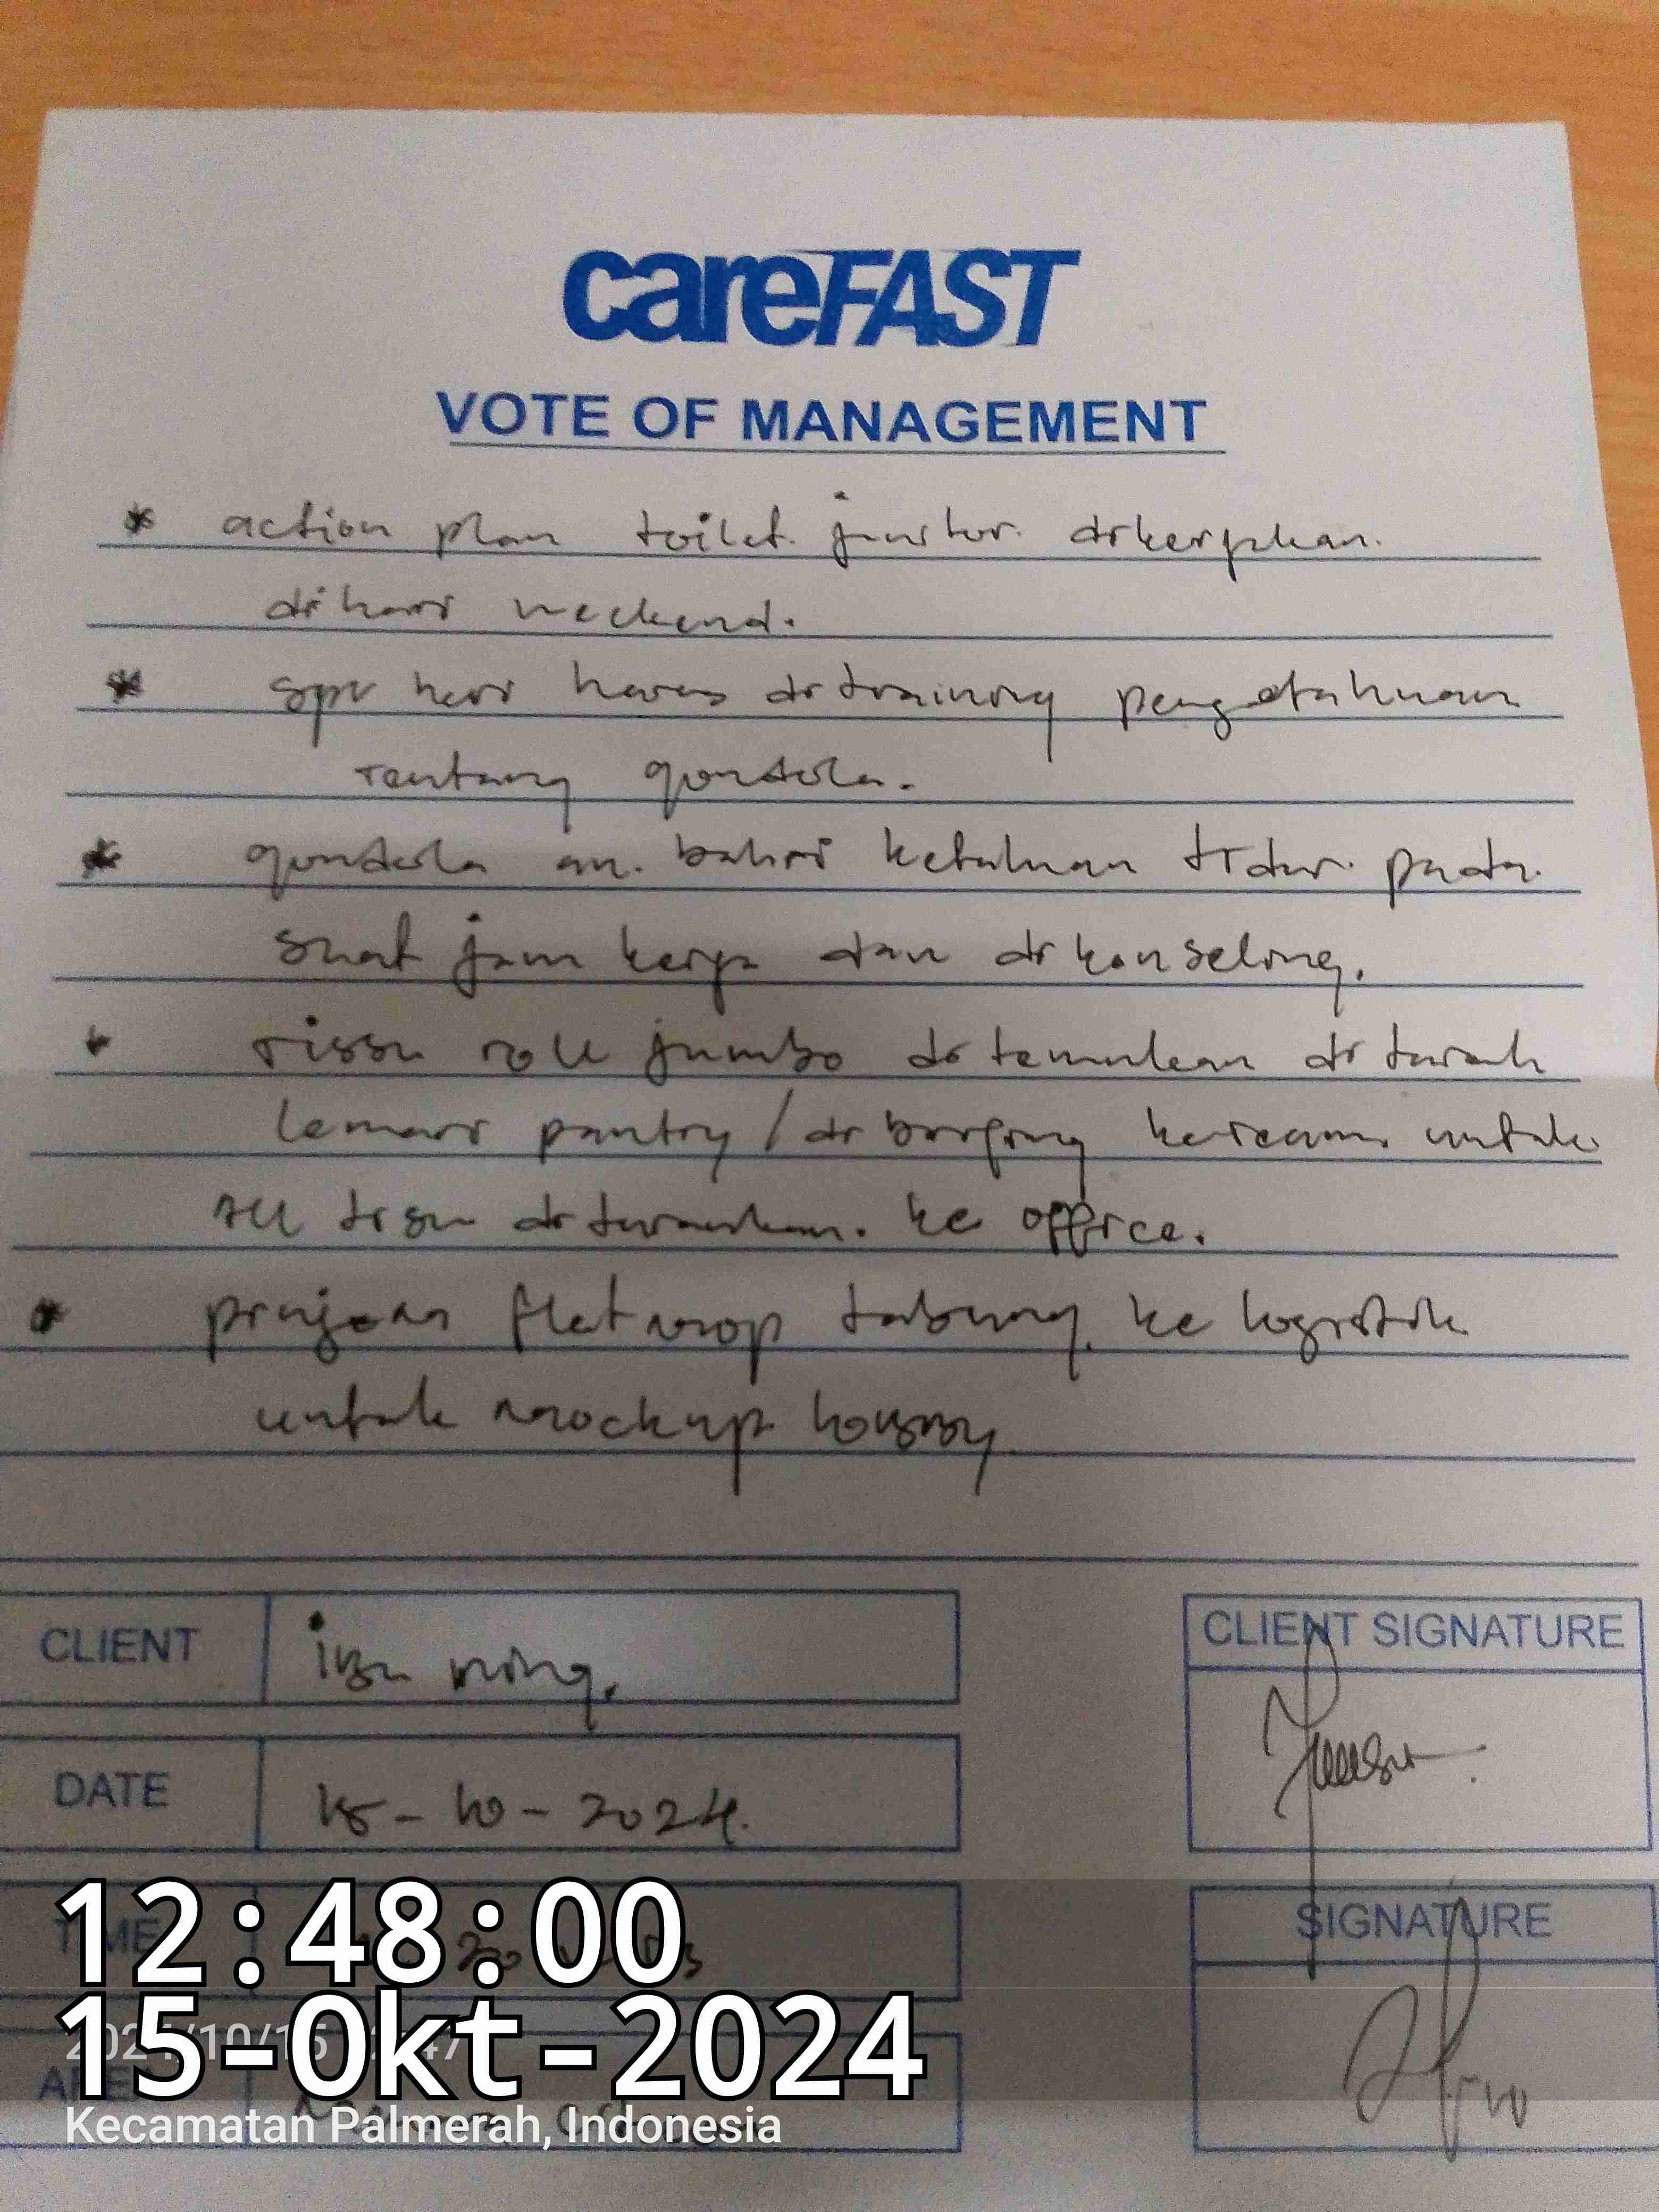 careFAST
VOTE OF MANAGEMENT
* action plan toilet. dikerjakan.
dihari weekend.
* spv heri harus ditraining pengetahuan
tentang gondola.
* gondola an. bahri ketahuan tidur pada
saat jam kerja dan di konseling.
* tissu roll jumbo di temukan di bawah
lemari pantry / di untuk
all tissu di turunkan. ke office.
* pinjam flat mop tabung ke logistik
untuk mockup
CLIENT
ibu ning.
CLIENT SIGNATURE
DATE
15-10-2024.
SIGNATURE
12:48:00
15-Okt-2024
Kecamatan Palmerah, Indonesia